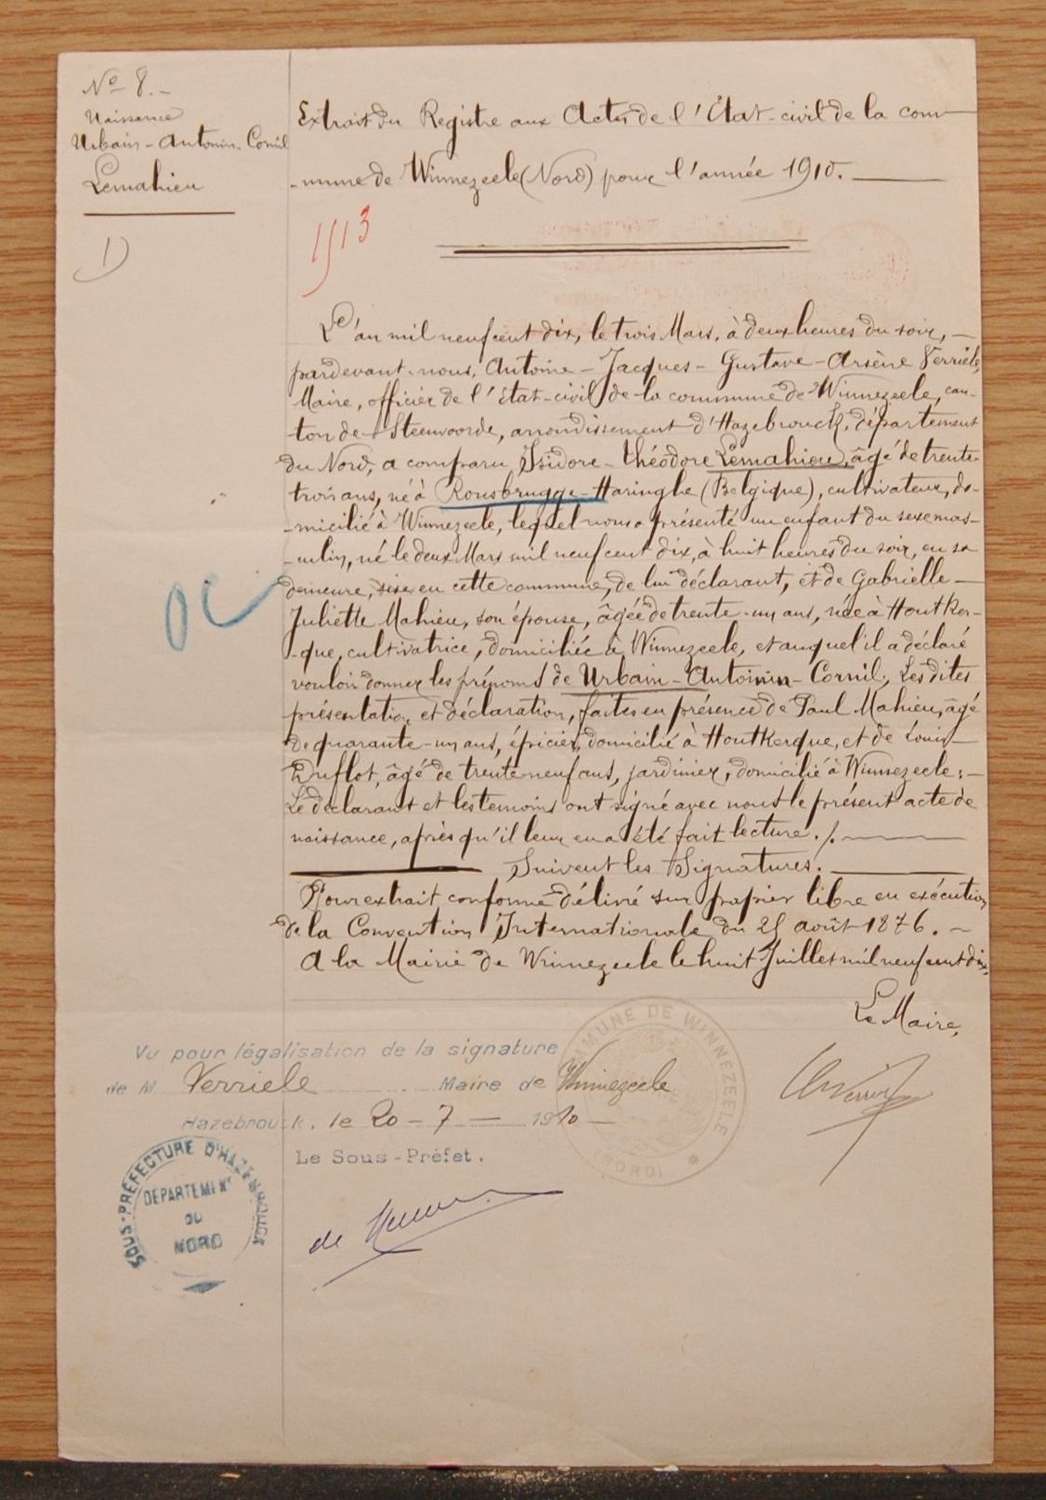 No 8. -
Naissance
Urbain - Antonin - Cornil
Lemahieu
1)
Extrait du Registre aux Actes de l'État-civil de la com-
-mune de Winnezeele (Nord) pour l'année 1910.
1513
L'an mil neuf cent dix, le trois Mars, à deux heures du soir, -
pardevant nous, Antoine - Jacques - Gustave - Arsène Verriele,
Maire, officier de l'état-civil de la commune de Winnezeele, can-
-ton de Steenvoorde, arrondissement d'Hazebrouck, département
du Nord, a comparu Isidore - théodore Lemahieu, âgé de trente-
trois ans, né à Rousbrugge-Haringhe (Belgique), cultivateur, do-
-micilié à Winnezeele, lequel nous a présenté un enfant du sexe mas-
-culin, né le deux Mars mil neuf cent dix, à huit heures du soir, en sa
demeure, sise en cette commune, de lui déclarant, et de Gabrielle -
Juliette Mahieu, son épouse, âgée de trente-un ans, née à Houtker-
-que, cultivatrice, domiciliée à Winnezeele, et auquel il a déclaré
vouloir donner les prénoms de Urbain - Antonin - Cornil. Les dites
présentation et déclaration, faites en présence de Paul Mahieu, âgé
de quarante-un ans, épicier, domicilié à Houtkerque, et de Louis
Duflot, âgé de trente neuf ans, jardinier, domicilié à Winnezeele; -
Le déclarant et les témoins ont signé avec nous le présent acte de
naissance, après qu'il leur en a été fait lecture. /.
Suivent les Signatures.
Pour extrait conforme délivré sur papier libre en exécution
de la Convention Internationale du 25 août 1876. -
A la Mairie de Winnezeele le huit Juillet mil neuf cent dix,
Le Maire,
Vu pour légalisation de la signature
de M. Verriele Maire de Winnezeele
Hazebrouck, le 20 - 7 - 1910 -
Le Sous-Préfet.
COMMUNE DE WINNEZEELE
(NORD)
SOUS-PRÉFECTURE D'HAZEBROUCK
DÉPARTEMENT
DU
NORD